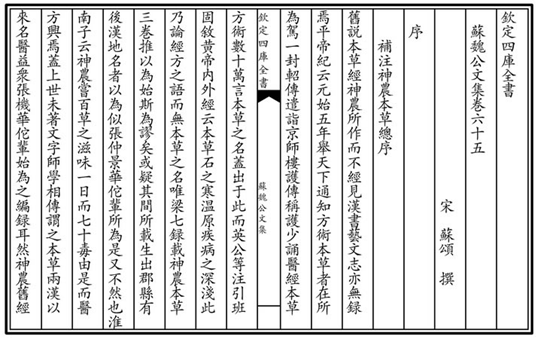 欽定四庫全書
蘇魏公文集卷六十五
宋 蘇頌 撰
序
補注神農本草總序
舊說本草經神農所作而不經見漢書藝文志亦無録
焉平帝紀云元始五年舉天下通知方術本草者在所
為駕一封軺傳遣詣京師樓護傳稱護少誦醫經本草
欽定四庫全書
蘇魏公文集
方術數十萬言本草之名蓋出于此而英公等注引班
固敘黄帝内外經云本草石之寒温原疾病之深淺此
乃論經方之語而無本草之名唯梁七録載神農本草
三卷推以為始斯為謬矣或疑其間所載生出郡縣有
後漢地名者以為似張仲景華佗輩所為是又不然也淮
南子云神農嘗百草之滋味一日而七十毒由是而醫
方興焉蓋上世未著文字師學相傳謂之本草兩漢以
來名醫益衆張機華佗輩始為之編録耳然神農舊經